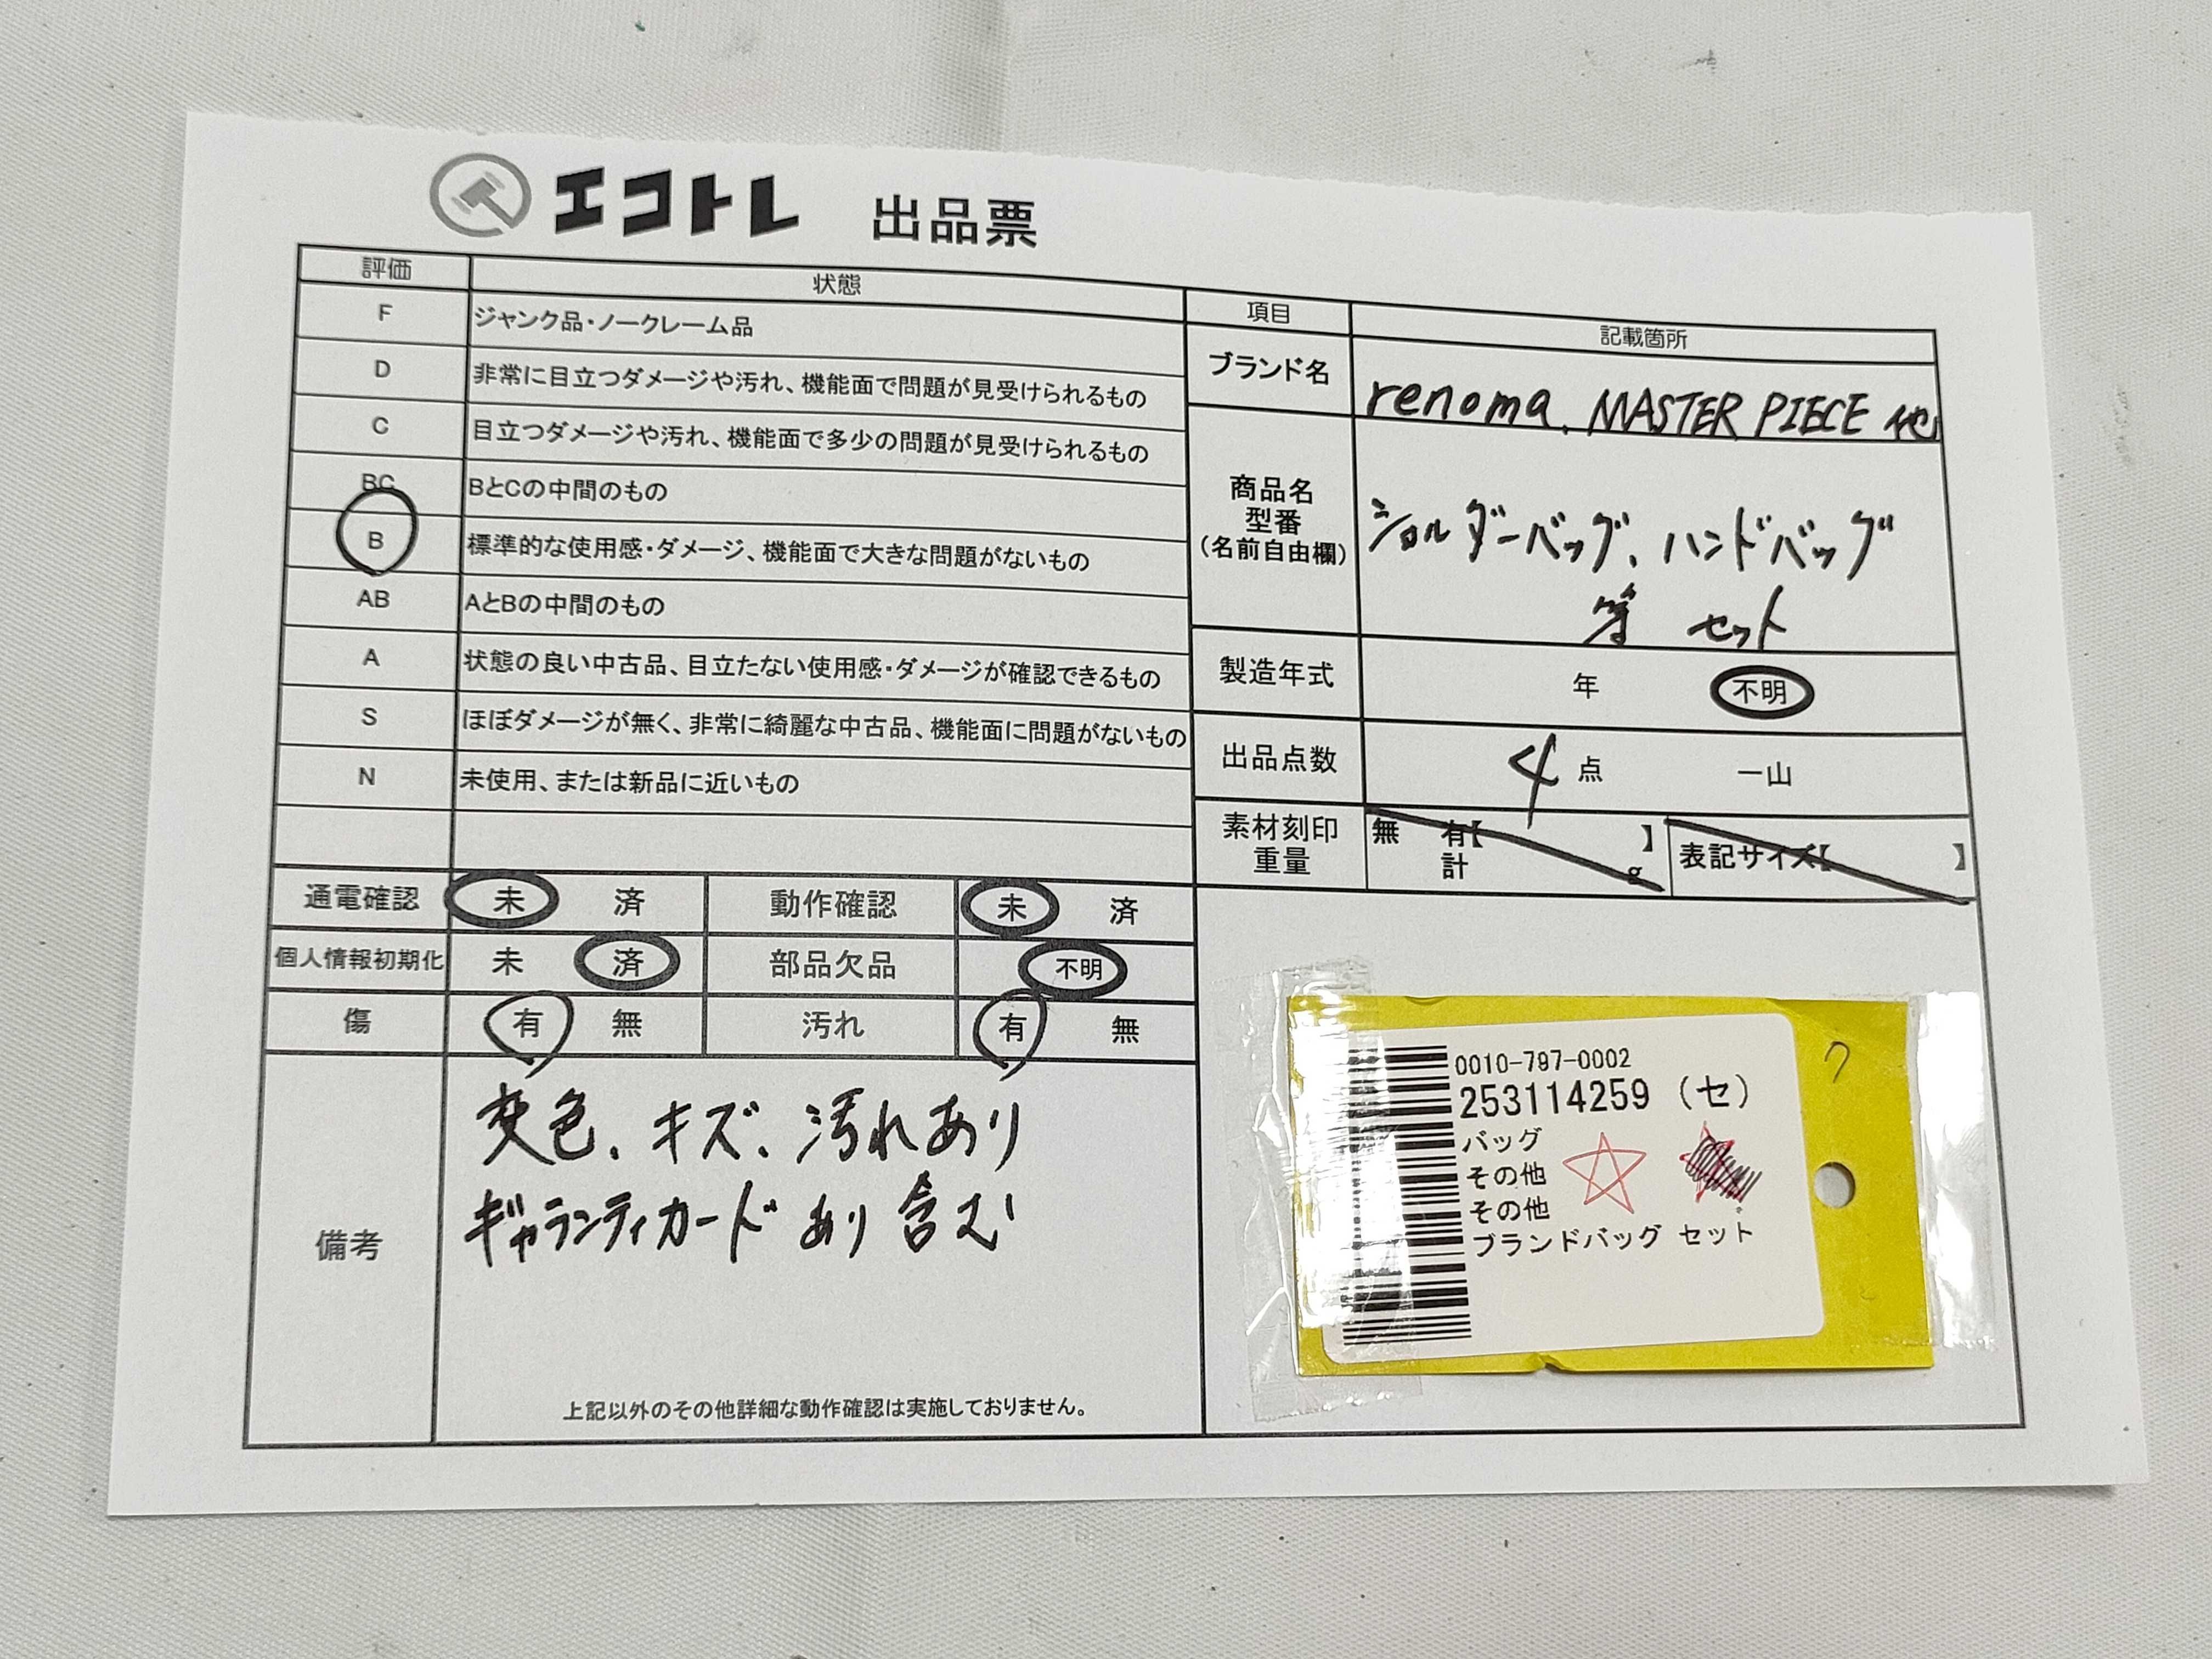 エコトレ 出品票
評価 状態
F ジャンク品・ノークレーム品
D 非常に目立つダメージや汚れ、機能面で問題が見受けられるもの
C 目立つダメージや汚れ、機能面で多少の問題が見受けられるもの
BC BとCの中間のもの
B 標準的な使用感・ダメージ、機能面で大きな問題がないもの
AB AとBの中間のもの
A 状態の良い中古品、目立たない使用感・ダメージが確認できるもの
S ほぼダメージが無く、非常に綺麗な中古品、機能面に問題がないもの
N 未使用、または新品に近いもの
通電確認 未 済 動作確認 未 済
個人情報初期化 未 済 部品欠品 不明
傷 有 無 汚れ 有 無
備考
変色、キズ、汚れあり
ギャランティカード あり 含む
上記以外のその他詳細な動作確認は実施しておりません。
項目 記載箇所
ブランド名 renoma、MASTER PIECE 他
商品名
型番
(名前自由欄)
ショルダーバッグ、ハンドバッグ
等 セット
製造年式 年 不明
出品点数 4 点 一山
素材刻印
重量
無 有【 】
計 g
表記サイズ【 】
0010-797-0002
253114259 (セ)
バッグ
その他
その他
ブランドバッグ セット
ワ